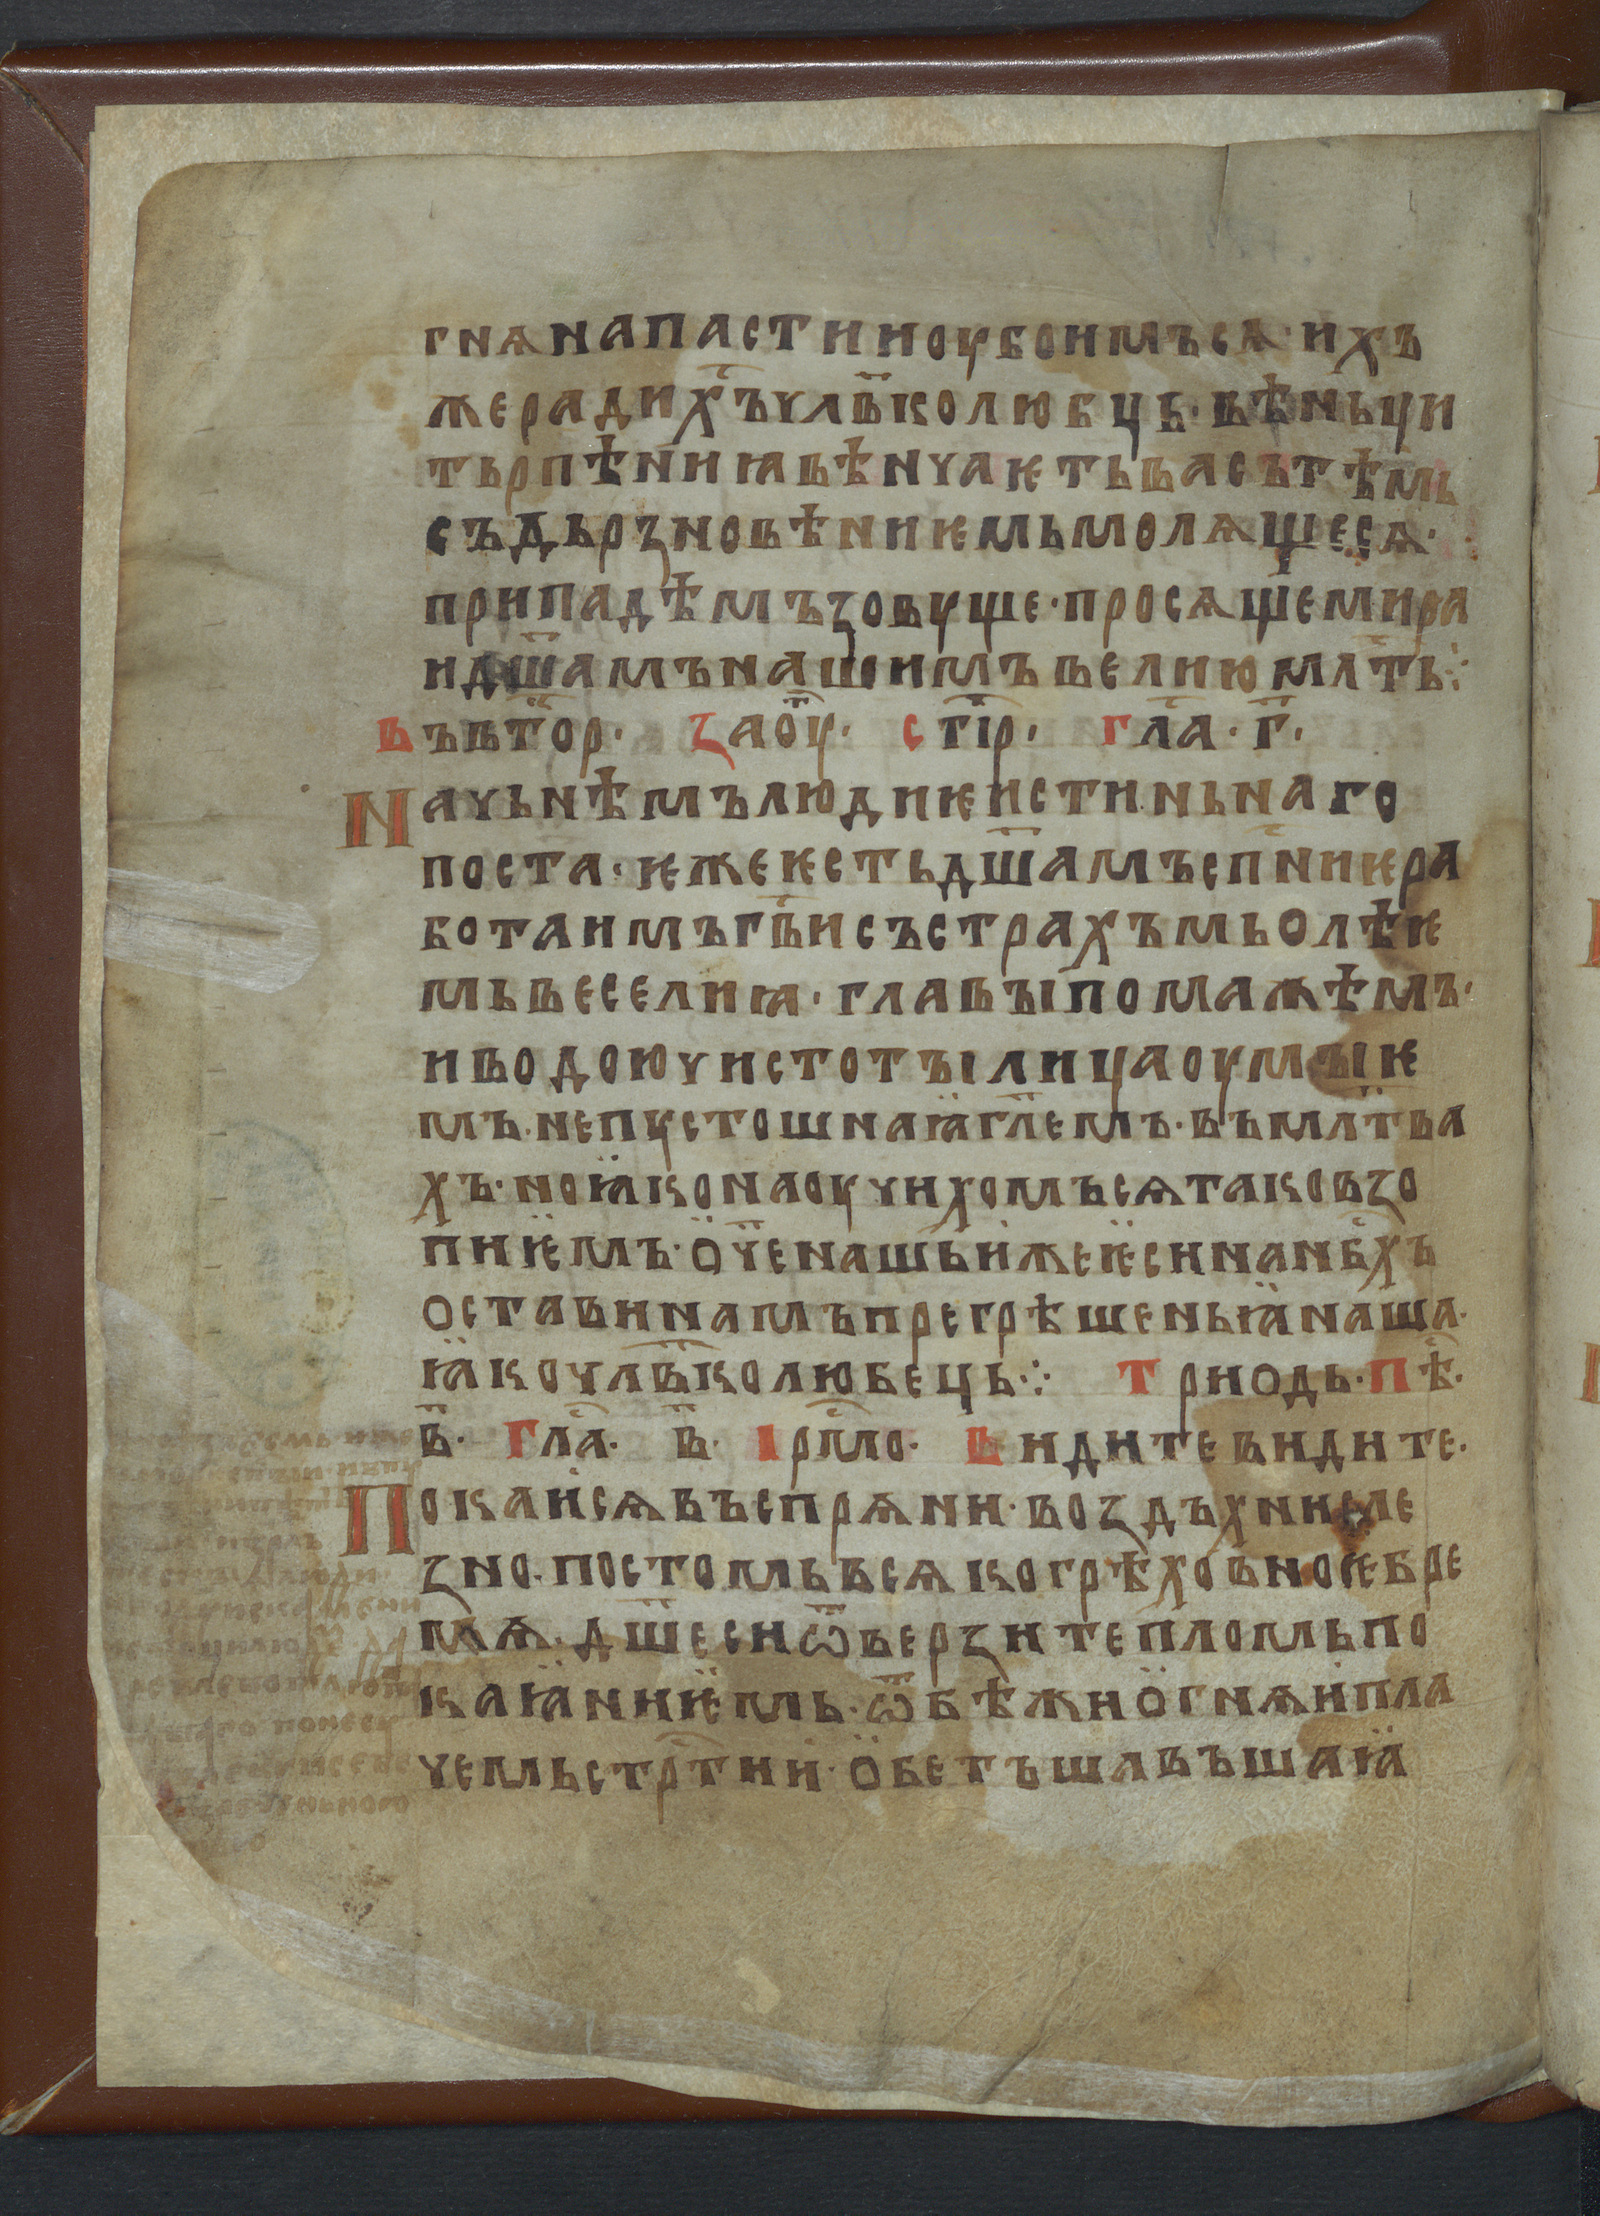 гнѧнапастиноукбоимъсѧ·ихъ
жерадих҃ъчлв҃колюбць·вѣньци
тьрпѣниꙗвѣнчаѥтьвасътѣмь
съдьрꙁновѣниѥмьмолѧщесѧ·
припадѣмъꙁовуще·просѧщемира
идш҃амънашимъвелиюмлⷭ҇ть⁘
Въвто҃р· ꙁао҃у· стⷯ҇ір· гла҃·г҃·
Начьнѣмълюдиѥистиньнаго
поста·ѥжеѥстьдш҃амъспⷭ҇ниѥра
ботаимъгвⷭ҇исъстрахъмьолѣѥ
мьвеселиꙗ·главъıпомажѣмъ·
иводоючистотъılицаоумъıѥ
мъ·непустошнаꙗгл҃емъ·въмлт҃ва
хъ·ноꙗконаоучихомъсѧтаковꙁо
пиѥмъ·ѻч҃енашьижеѥсинанбⷭ҇хъ
оставинамъпрегрѣшеньꙗнаша·
ꙗкочлв҃колюбець⁘ Триодь·пѣⷭ҇·
в҃· Гла҃· в҃· Ірмⷭ҇о· Видитевидите·
Покаисѧвъспрѧни·воꙁдъхниѥле
ꙁно·постомьвсѧкогрѣховноѥбре
мѧ·дш҃есиѿверꙁитепломьпо
каꙗниѥмь·ѿбѣжиогнѧипла
чемьстрⷭ҇тии·обетъшавъшаꙗ